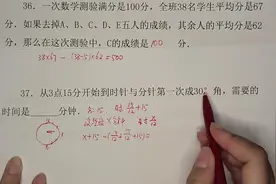 36. 一次数学测验满分是100分，全班38名学生平均分是67
分，如果去掉A、B、C、D、E五人的成绩，其余人的平均分是62
分，那么在这次测验中，C的成绩是 100 分.
38×67 - (38-5)×62 = 500
37. 从3点15分开始到时针与分针第一次成30°角，需要的
时间是 分钟.
x+15 - (